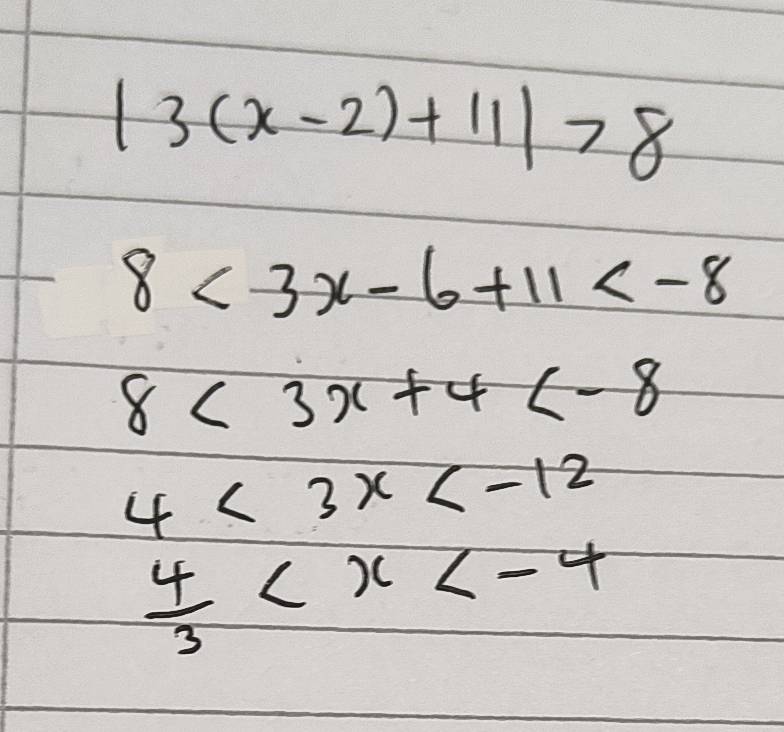 |3(x-2)+11| > 8
8 < 3x-6+11 < -8
8 < 3x+4 < -8
4 < 3x < -12
4/3 < x < -4